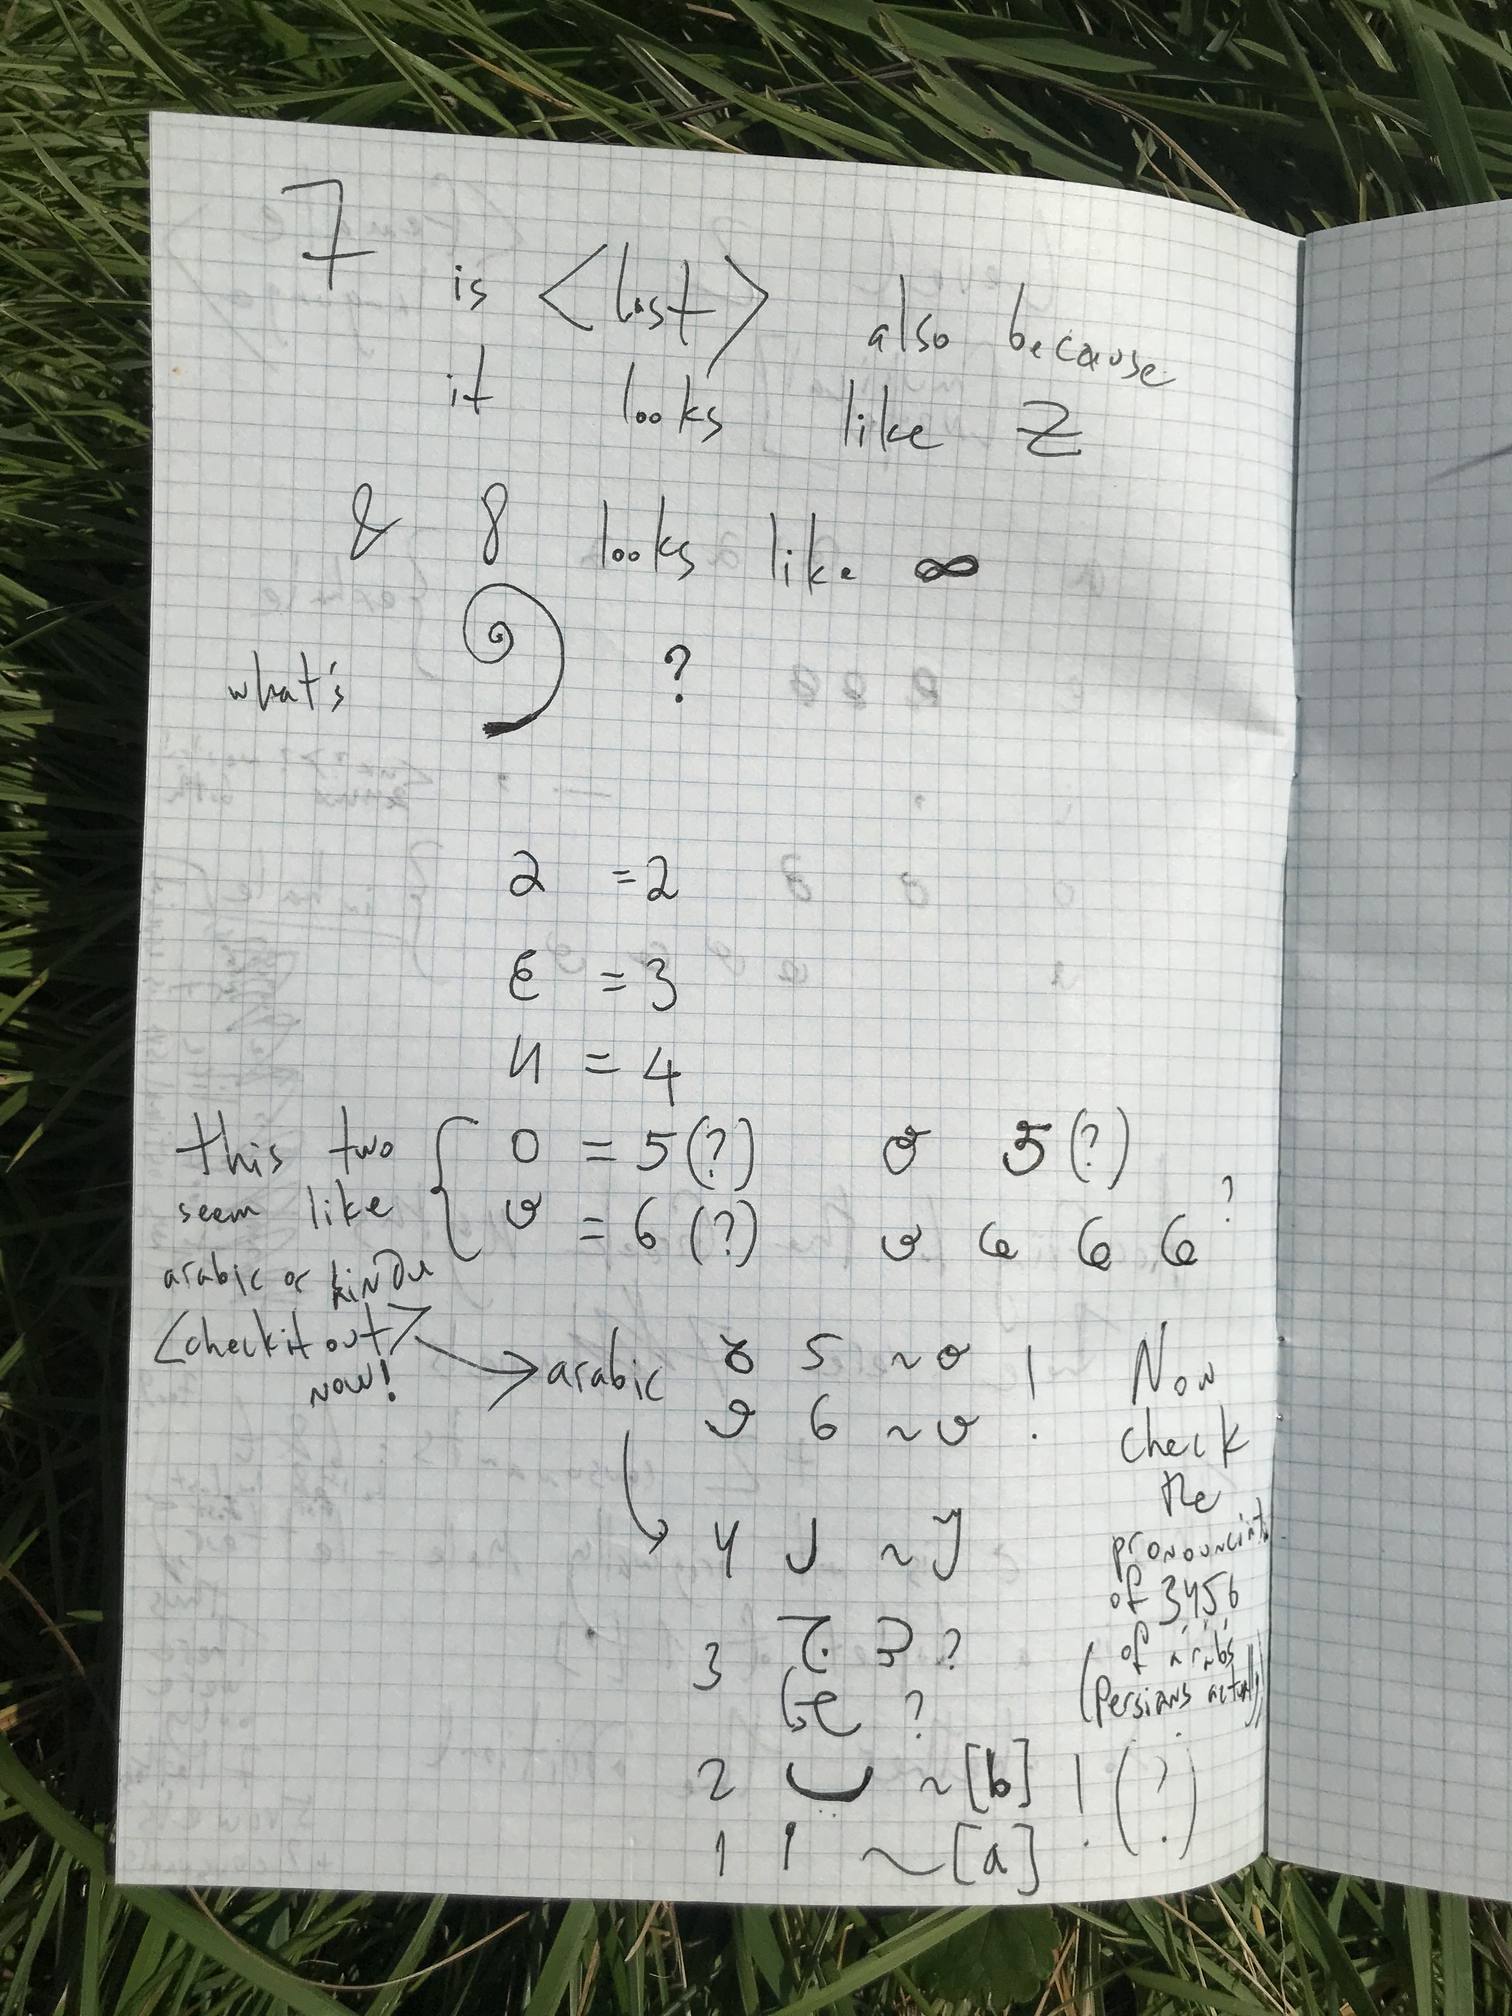 7 is <last> also because
it looks like Z
& 8 looks like ∞
what's 9 ?
2 = 2
ε = 3
4 = 4
this two
seem like
arabic or hindu
<check it out>
now!
0 = 5 (?) 5 (?)
= 6 (?) 6 6 ?
arabic 5 ~ !
6 ~ !
4 ~
3 3 ?
?
2 ~ [b] ! (?)
1 ~ [a]
Now
check
the
of 3456
of arabs
(Persians actually)